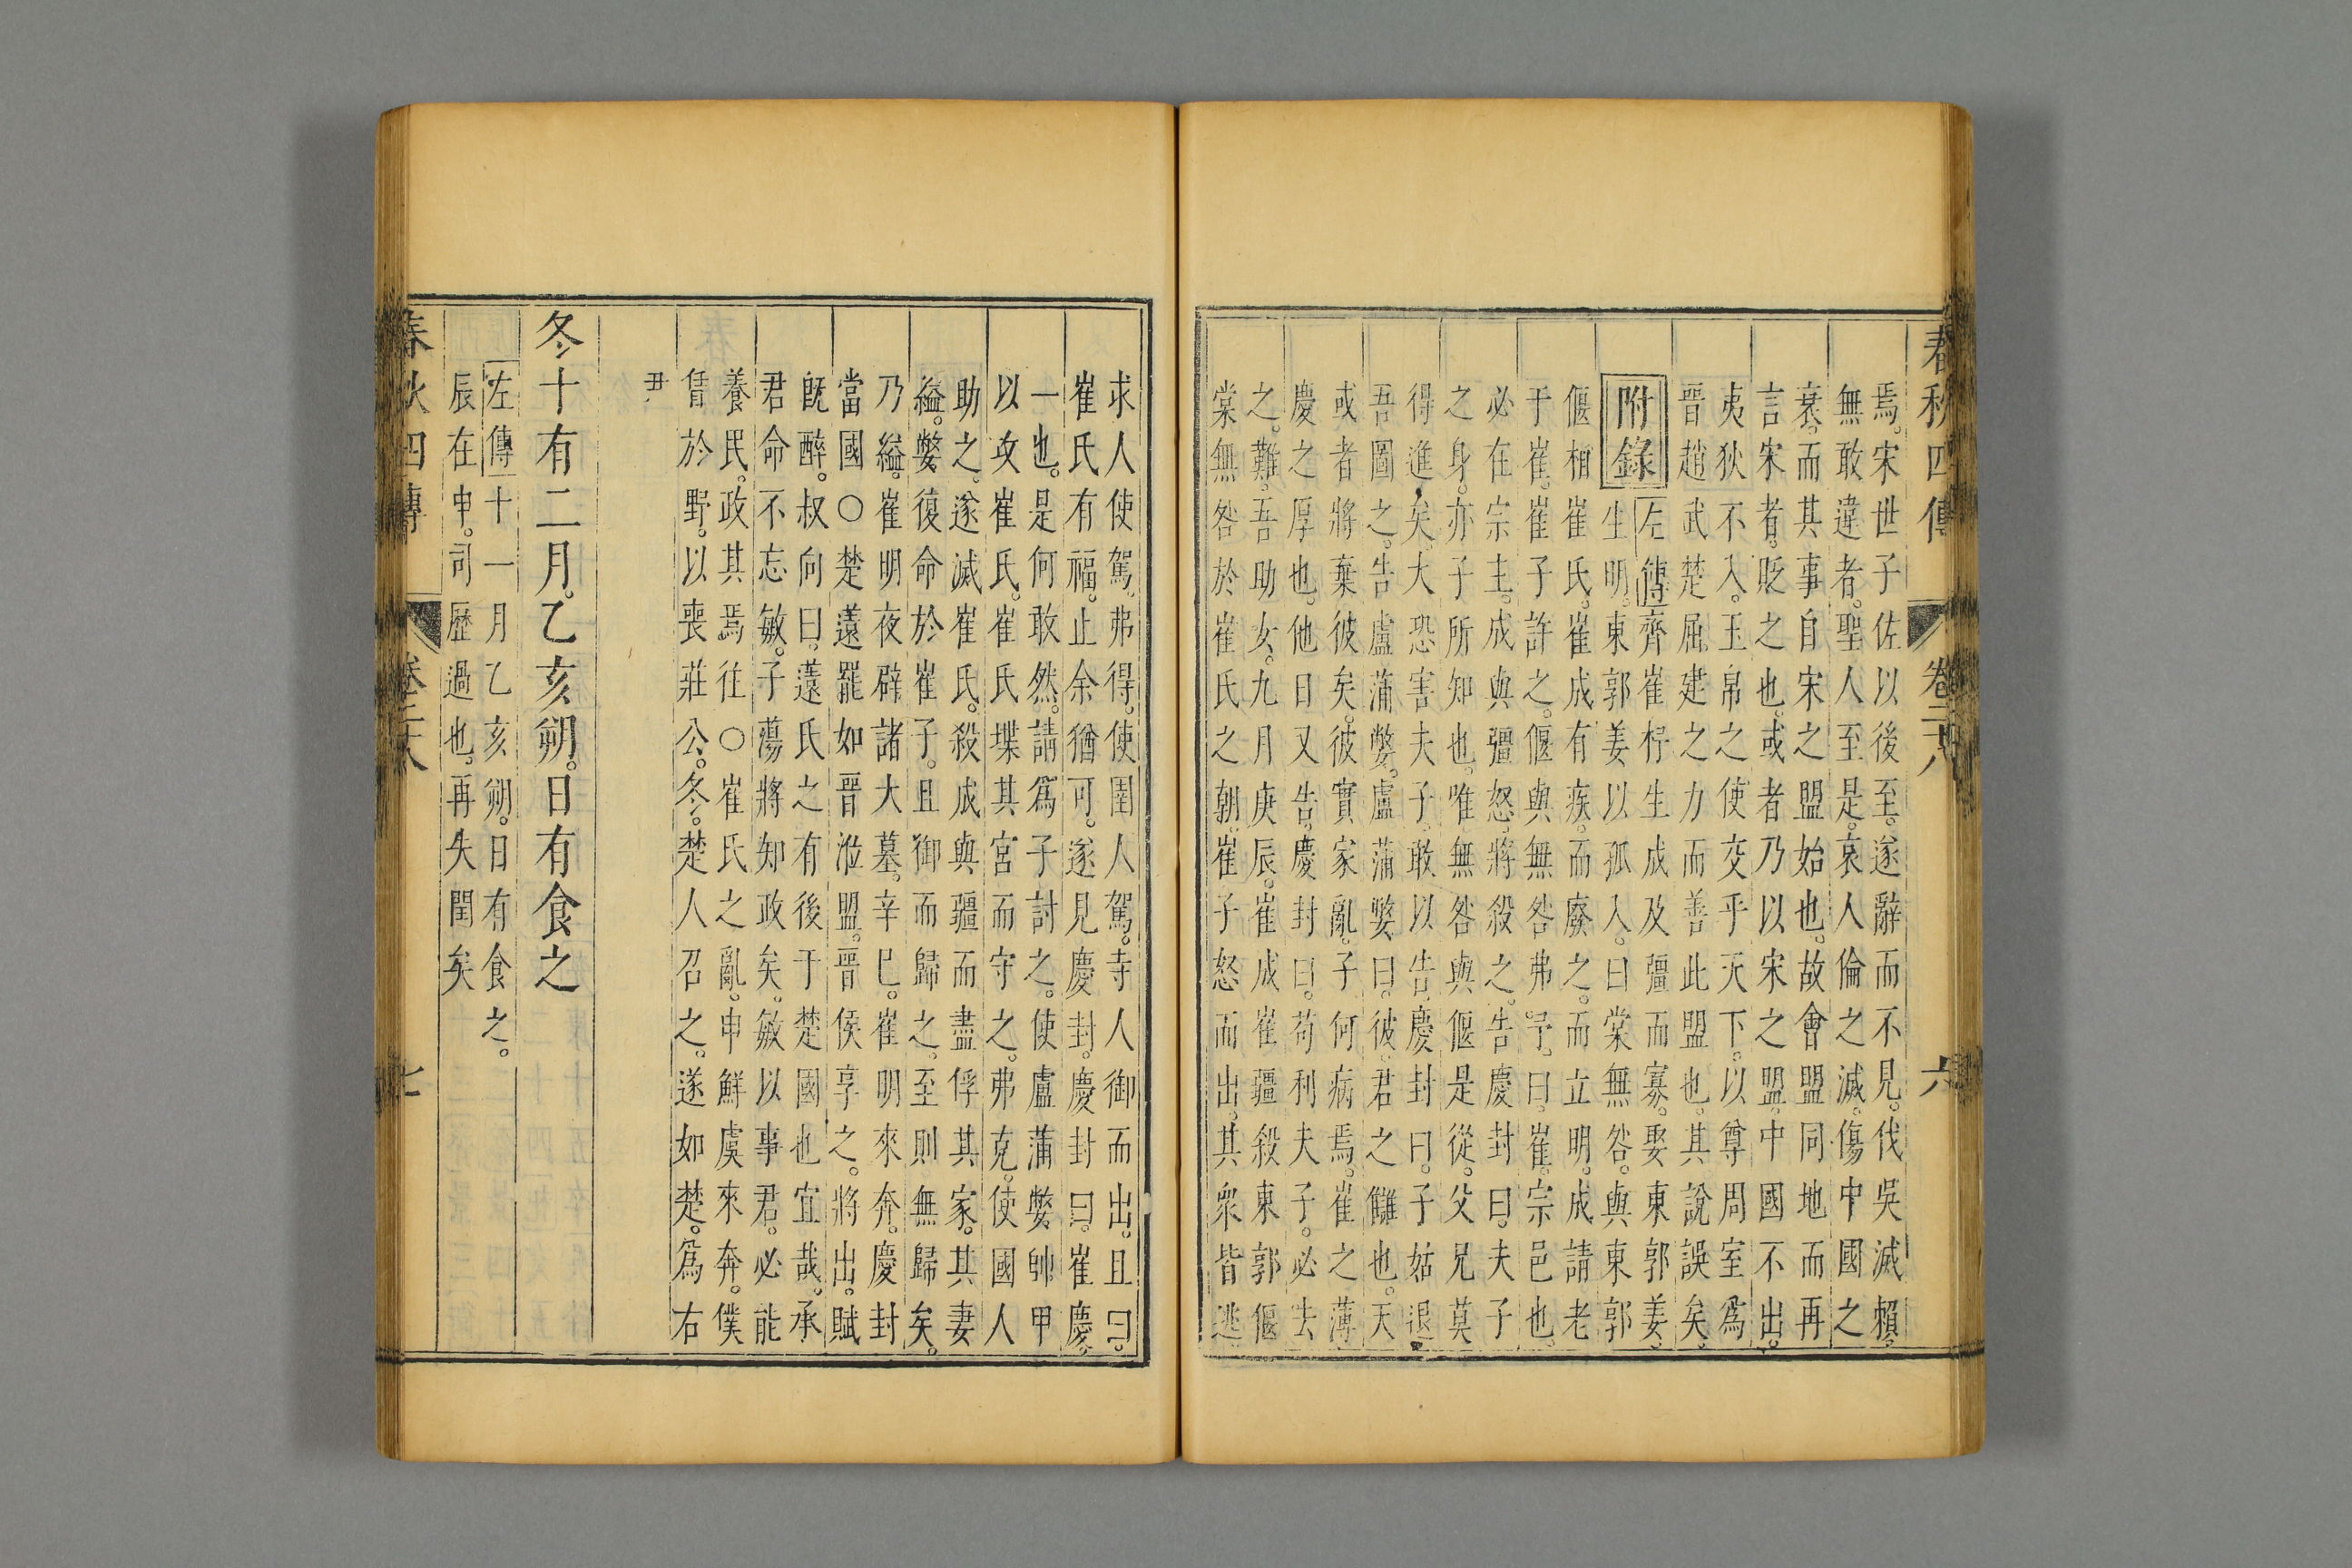 春秋四傳 卷二十八 六
焉。宋世子佐以後至。遂辭而不見。伐吳滅賴。
無敢違者。聖人至是。哀人倫之滅。傷中國之
衰。而其事自宋之盟始也。故會盟同地而再
言宋者。貶之也。或者乃以宋之盟。中國不出。
夷狄不入。玉帛之使交乎天下。以尊周室為
晉趙武楚屈建之力而善此盟也。其說誤矣。
附錄 左傳齊崔杼生成及彊而寡。娶東郭姜。
生明。東郭姜以孤入。曰棠無咎。與東郭
偃相崔氏。崔成有疾。而廢之。而立明。成請老
于崔。崔子許之。偃與無咎弗予。曰。崔。宗邑也。
必在宗主。成與彊怒。將殺之。告慶封曰。夫子
之身。亦子所知也。唯無咎與偃是從。父兄莫
得進矣。大恐害夫子。敢以告慶封曰。子姑退
吾圖之。告盧蒲嫳。盧蒲嫳曰。彼。君之讎也。天
或者將棄彼矣。彼實家亂。子何病焉。崔之薄
慶之厚也。他日又告。慶封曰。苟利夫子。必去
之。難。吾助女。九月庚辰。崔成崔彊殺東郭偃
棠無咎於崔氏之朝。崔子怒而出。其衆皆逃
求人使駕。弗得。使圉人駕。寺人御而出。且曰。
崔氏有福。止余猶可。遂見慶封。慶封曰。崔慶
一也。是何敢然。請爲子討之。使盧蒲嫳帥甲
以攻崔氏。崔氏堞其宮而守之。弗克。使國人
助之。遂滅崔氏。殺成與彊而盡俘其家。其妻
縊。嫳復命於崔子。且御而歸之。至則無歸矣。
乃縊。崔明夜辟諸大墓。辛巳。崔明來奔。慶封
當國〇楚薳罷如晉涖盟。晉侯享之。將出。賦
旣醉。叔向曰。薳氏之有後于楚國也宜哉。承
君命不忘敏。子蕩將知政矣。敏以事君。必能
養民。政其焉往〇崔氏之亂。申鮮虞來奔。僕
賃於野。以喪莊公。冬。楚人召之。遂如楚。爲右
尹
冬十有二月。乙亥朔。日有食之
左傳十一月乙亥朔。日有食之。
辰在申。司歷過也。再失閏矣
春秋四傳 卷二十八 七